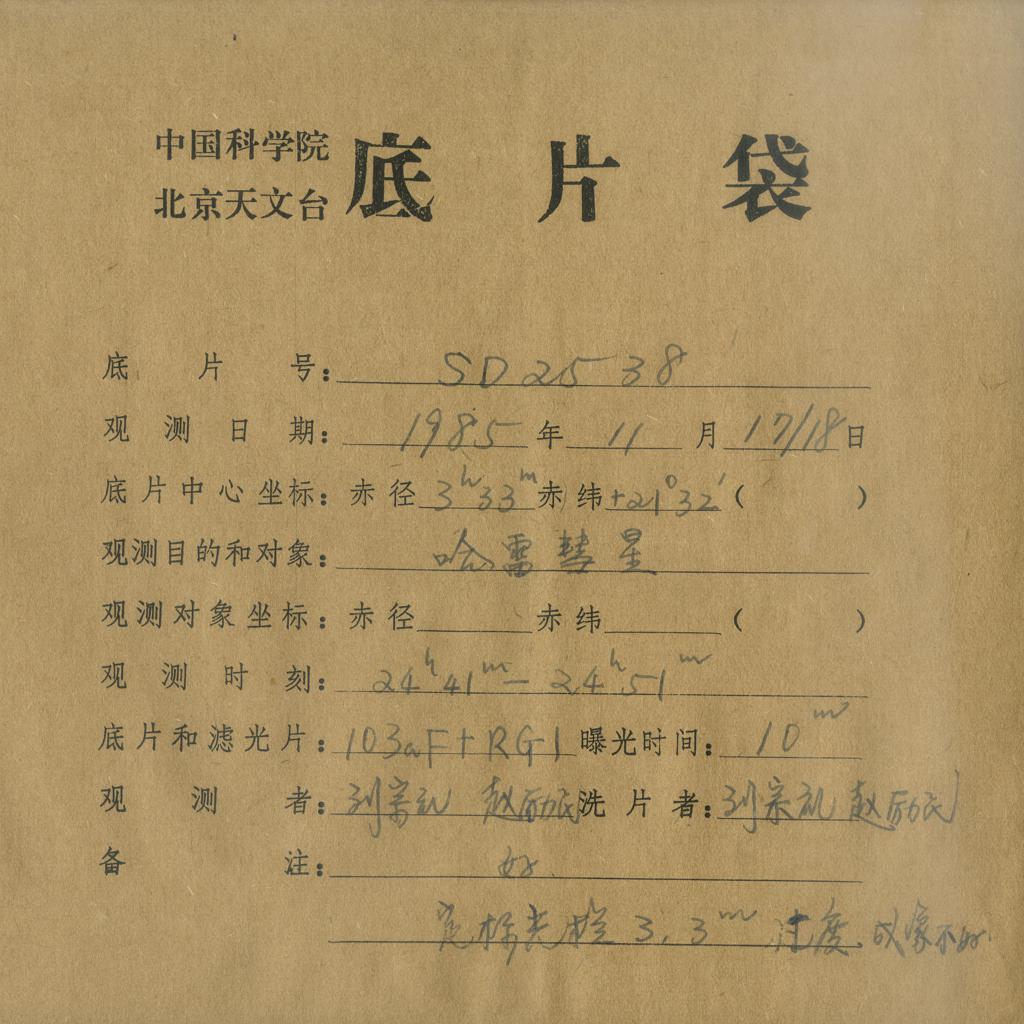 中国科学院
北京天文台
底片袋
底片号：SD2538
观测日期：1985年11月17/18日
底片中心坐标：赤径3h33m赤纬+21°32′（ ）
观测目的和对象：哈雷彗星
观测对象坐标：赤径 赤纬 （ ）
观测时刻：24h41m—24h51m
底片和滤光片：103aF+RG1曝光时间：10m
观测者：刘宗礼 赵励民洗片者：刘宗礼 赵励民
备注：好
定标光楔3.3m 过度 成像不好